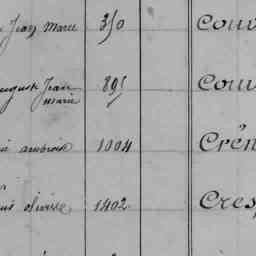 Jean Marie 350 Cou
Auguste Jean
marie 895 Cou
ambroise 1004 Crén
olivier 1402 Cres